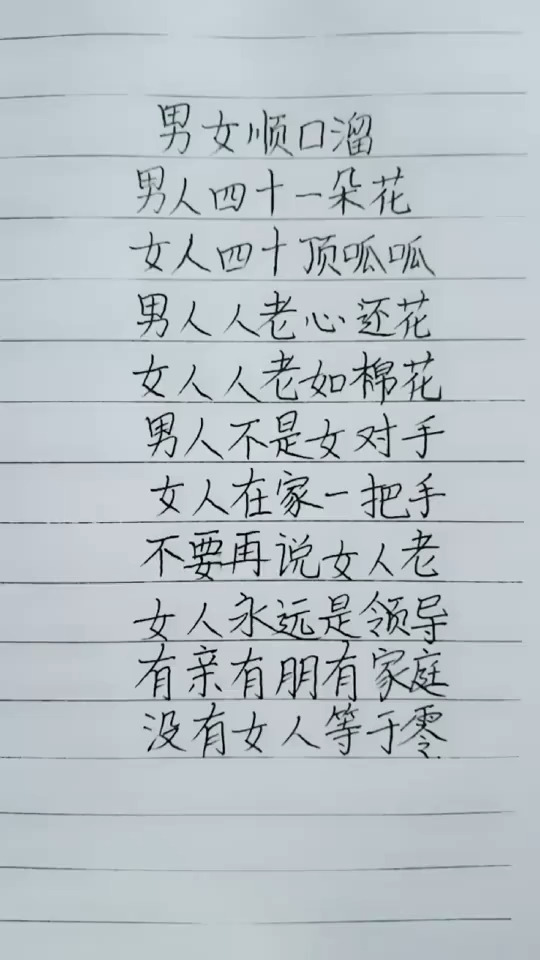 男女顺口溜
男人四十一朵花
女人四十顶呱呱
男人人老心还花
女人人老如棉花
男人不是女对手
女人在家一把手
不要再说女人老
女人永远是领导
有亲有朋有家庭
没有女人等于零